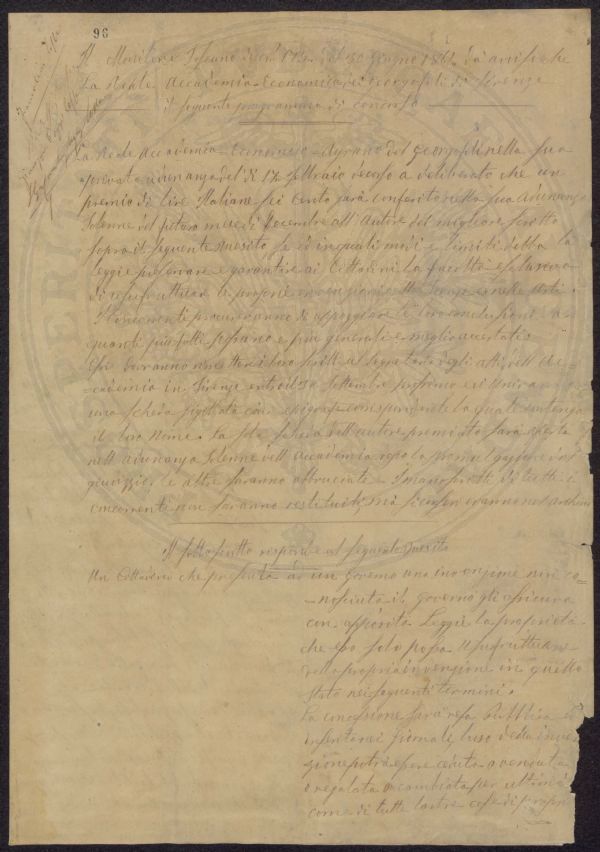 96
Il Monitore Toscano di N. 152 del 30 Giugno 1862 dà avviso che
La Reale Accademia Economica dei Georgofili di Firenze
il seguente programma di concorso
La Reale Accademia Economico-Agraria dei Georgofili nella sua
privata adunanza del dì Febbraio decorso a deliberato che un
premio di lire Italiane Sei Cento sarà conferito nella sua adunanza
Solenne del futuro mese di Decembre all'Autore del migliore scritto
sopra il seguente quesito se ed in quali modi e limiti debba la
Legge preservare e garantire ai Cittadini la facoltà esclusiva
di usufruttuare le proprie invenzioni e scoperte nelle Arti.
I Concorrenti procureranno di appoggiare le loro soluzioni a
quanti più fatti potranno e più generali e meglio accertati.
Essi dovranno rimettere i loro scritti al Segretario degli atti dell'Ac=
=cademia in Firenze entro il 30 Settembre prossimo ed unirvi
una scheda sigillata con epigrafe corrispondente la quale contenga
il loro Nome. La sola scheda dell'autore premiato sarà aperta
nell'adunanza Solenne dell'Accademia dopo la promulgazione del
giudizio, le altre saranno abbruciate. I manoscritti di tutti i
concorrenti non saranno restituiti, ma si conserveranno nel archivio
Il sottoscritto risponde al seguente Quesito
Un Cittadino che presenta a un Governo una invenzione non co=
=nosciuta il governo gli assicura
con apposita Legge la proprietà
che esso solo possa usufruttuare
della propria invenzione in quello
Stato nei seguenti termini.
La concessione sarà resa Pubblica ed
inserita nei Giornale l'uso della inven
zione potrà essere ceduta o venduta
o regalata o cambiata per ultimo
come di tutte l'altre cose di propri